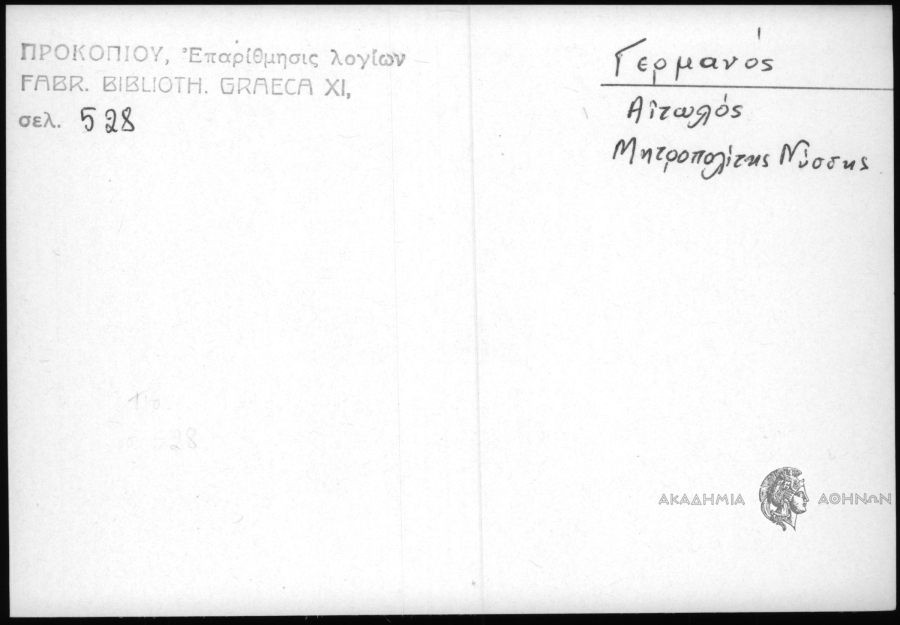 ΠΡΟΚΟΠΙΟΥ, Ἐπαρίθμησις λογίων
FABR. BIBLIOTH. GRAECA XI,
σελ. 528
Γερμανός
Αἰτωλός
Μητροπολίτης Νύσσης
ΑΚΑΔΗΜΙΑ ΑΘΗΝΩΝ